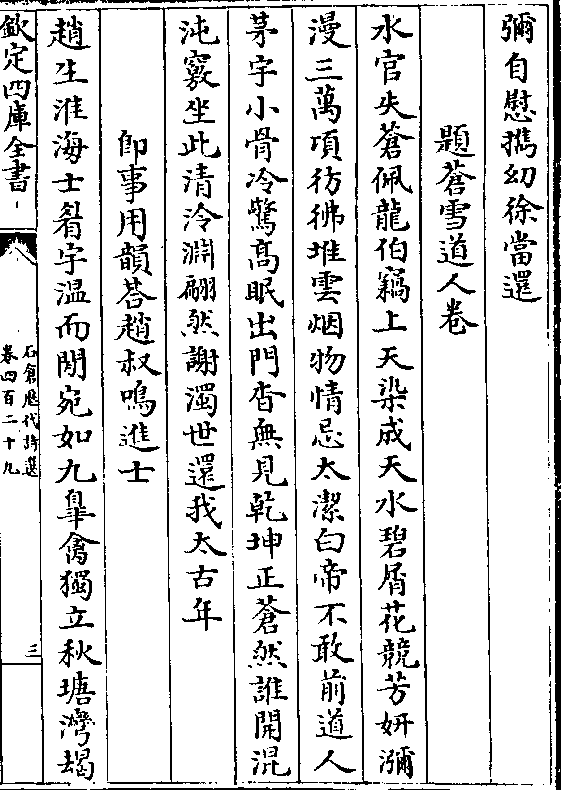 彌自慰擕幼徐當還
題蒼雪道人卷
水官失蒼佩龍伯竊上天染成天水碧屑花競芳妍瀰
漫三萬項彷彿堆雲烟物情忌太潔白帝不敢前道人
茅宇小骨冷驚高眠出門杳無見乾坤正蒼然誰開混
沌竅坐此清泠淵翩然謝濁世還我太古年
卽事用韻荅趙叔鳴進士
趙生淮海士眉宇溫而閒宛如九臯禽獨立秋塘灣朅
欽定四庫全書
石倉歷代詩選
卷四百二十九
三